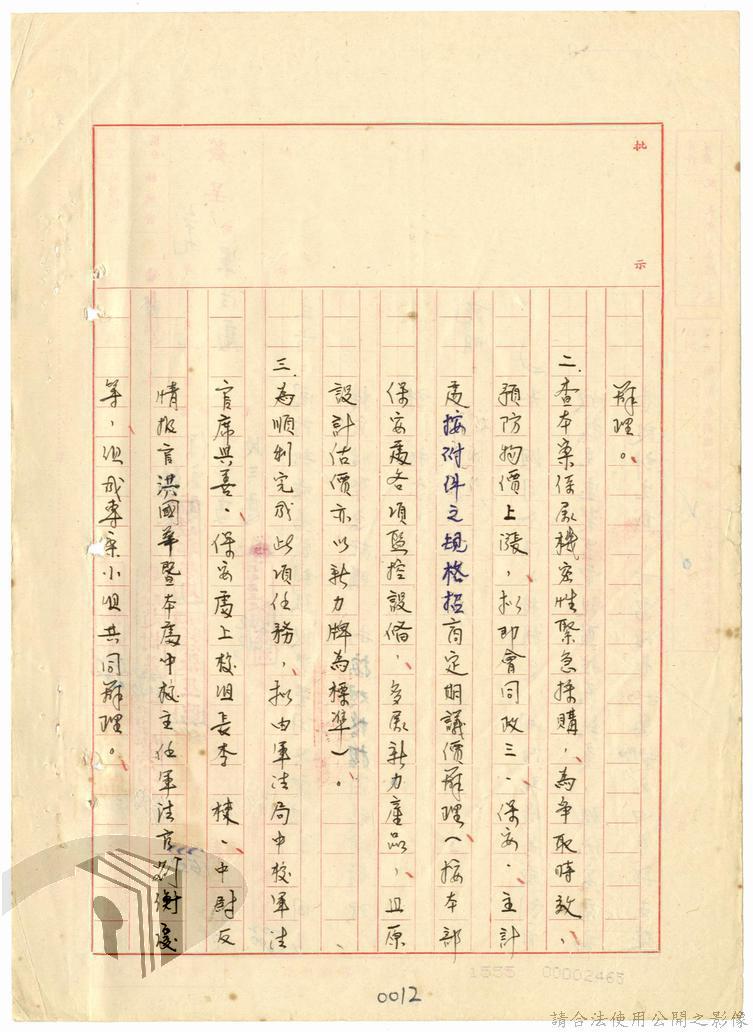 批示
辦理。
二.查本案係屬機密性緊急採購，為爭取時效，
預防物價上漲，擬即會同政三、保安、主計
處按附件之規格招商定期議價辦理（按本部
保安處各項監控設備，多屬新力產品，且原
設計估價亦以新力牌為標準）。
三.為順利完成此項任務，擬由軍法局中校軍法
官席與善、保安處上校組長李 棟、中尉反
情報官洪國華暨本處中校主任軍法官劉衡慶
等，組成專案小組共同辦理。
1555 00002465
0012
請合法使用公開之影像